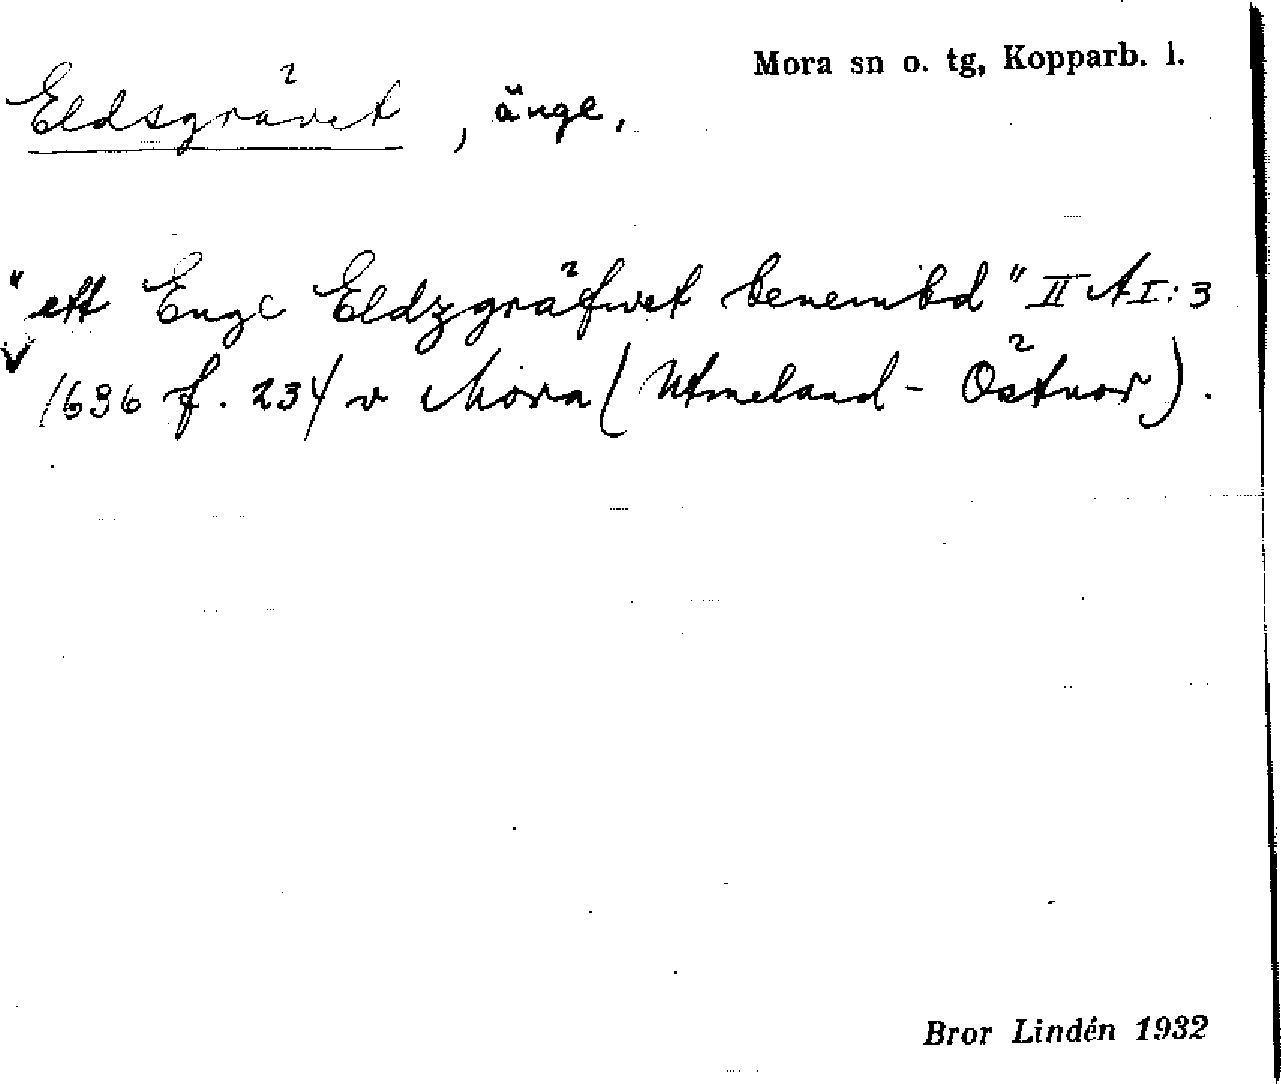 Mora sn o. tg, Kopparb. l.
Eldsgrävet, änge.
"ett Enge Eldzgräfwet benembd" II A I: 3
1696 f. 234 v Mora (Utmeland - Östnor).
Bror Lindén 1932